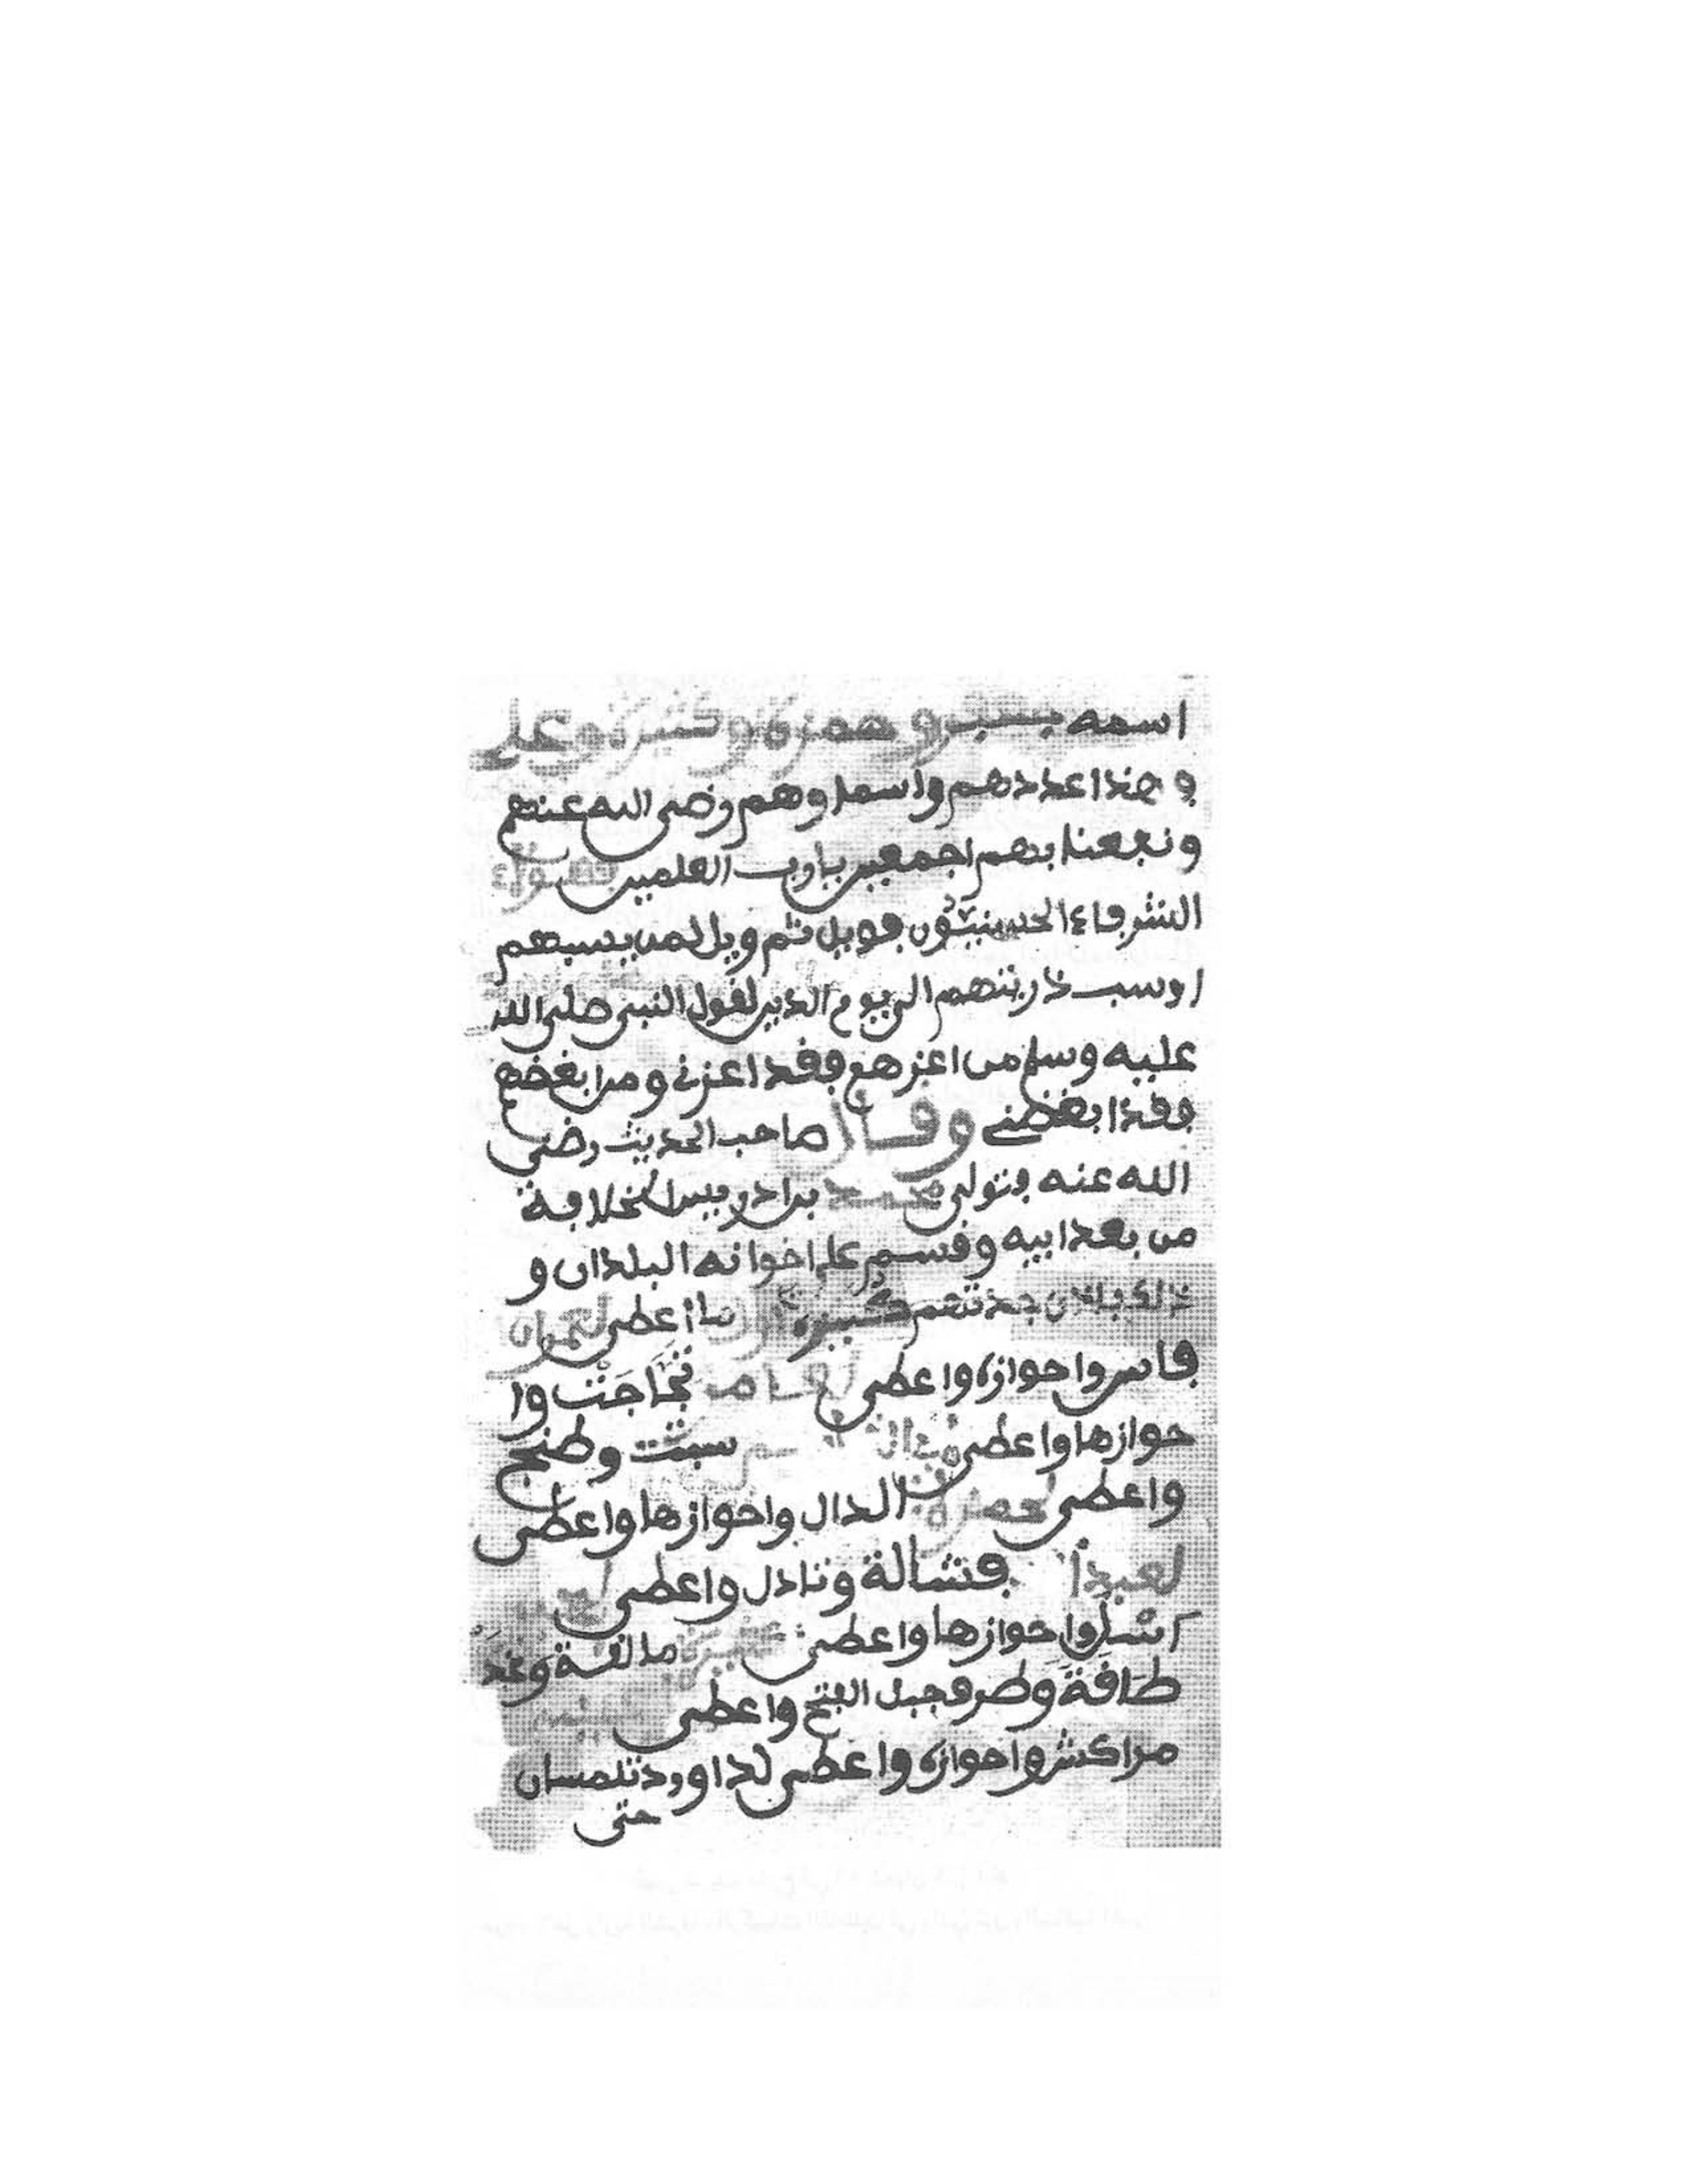 اسمه وحمزة وكثيرة وعلى
و هذا عددهم واسماوهم رضي الله عنهم
ونفعنا بهم اجمعين يارب العلمين
الشرفاء الحسنيون فويل ثم ويل لمن يسبهم
اوسب ذريتهم الى يوم الدين لقول النبي صلى الله
عليه وسلم من اعزهم فقد اعزني ومن ابغضهم
فقد ابغضني وقال صاحب الحديث رضي
الله عنه فتولى محمد بن ادريس الخلافة
من بعد ابيه وقسم على اخوانه البلدان و
ذالك باذن جدتهم كنيزة اعطى لعمران
فاس واحوازه واعطى وا
حوازها واعطى سبتت وطنج
واعطى لحمزة الدال واحوازها واعطى
لعبد وتادل واعطى
واحوازها واعطى مالقة
طاقة وطرف جبل الفتح واعطى
مراكش واحوازه واعطى لداوود تلمسان
حتى